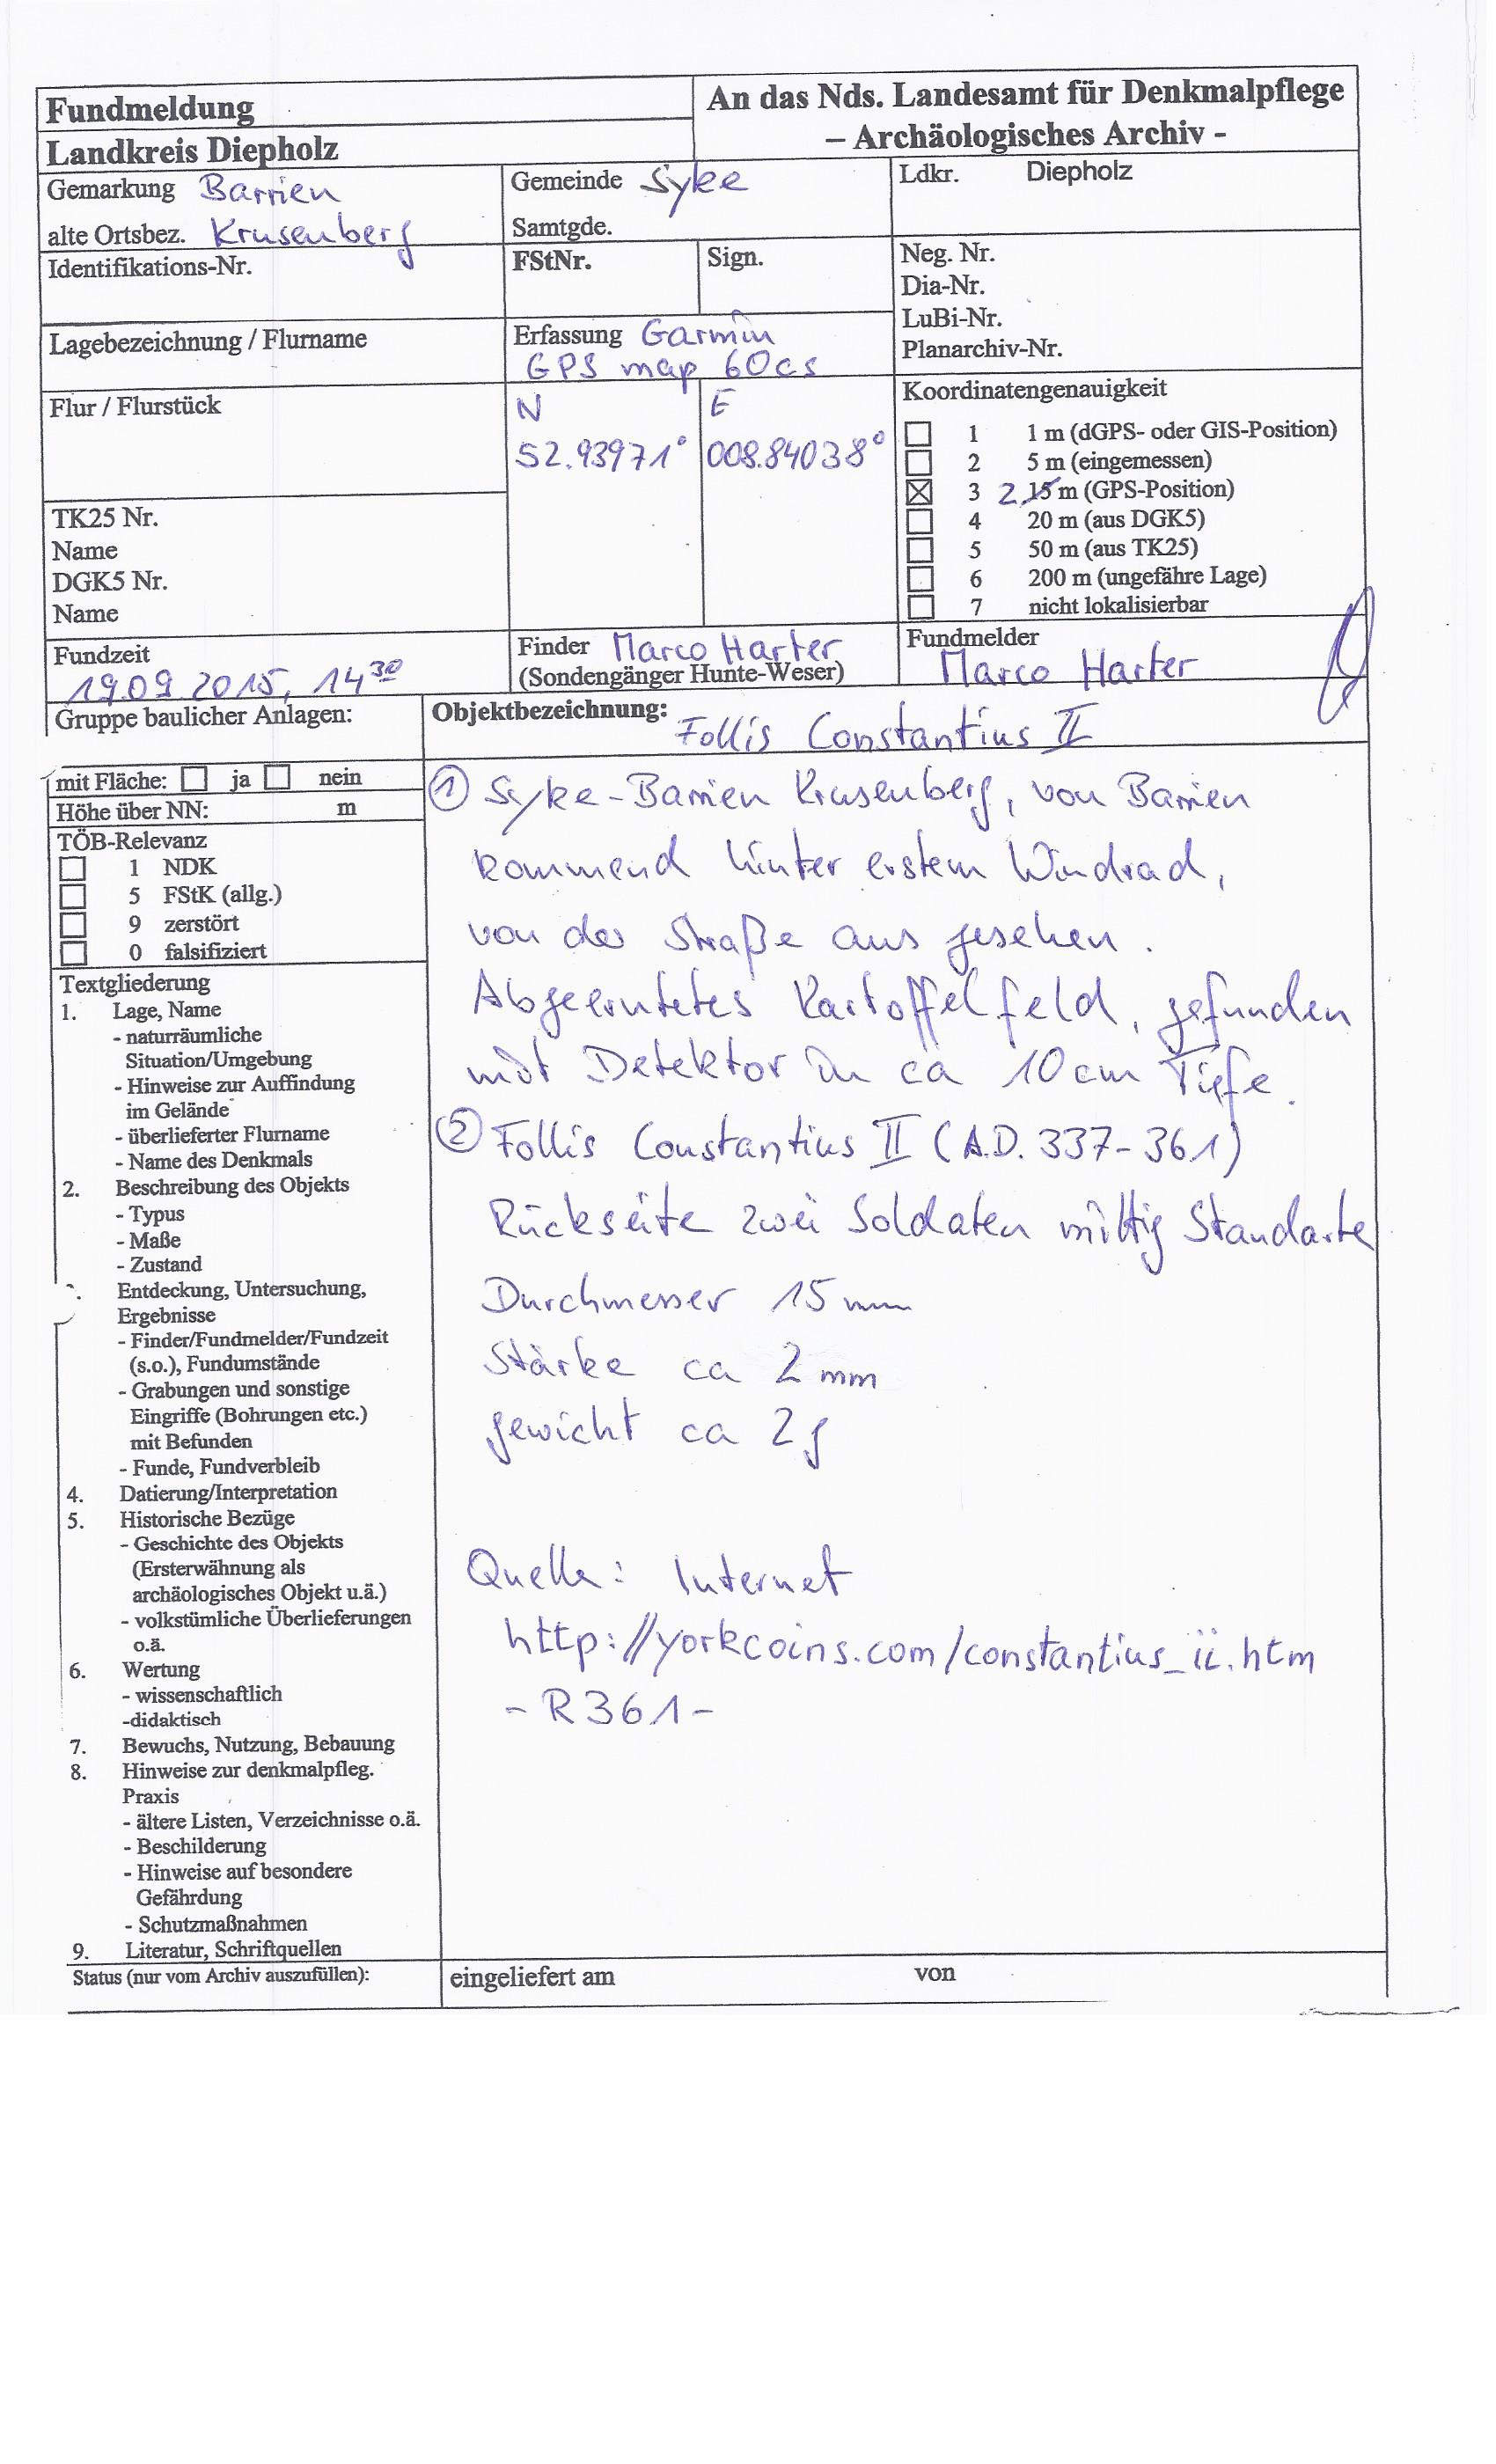 Fundmeldung
An das Nds. Landesamt für Denkmalpflege
– Archäologisches Archiv -
Landkreis Diepholz
Gemarkung Barrien
alte Ortsbez. Krusenberg
Gemeinde Syke
Samtgde.
Ldkr. Diepholz
Identifikations-Nr.
FStNr.
Sign.
Neg. Nr.
Dia-Nr.
LuBi-Nr.
Planarchiv-Nr.
Lagebezeichnung / Flurname
Erfassung Garmin
GPS map 60cs
Flur / Flurstück
N
52.93971°
E
008.84038°
Koordinatengenauigkeit
1 1 m (dGPS- oder GIS-Position)
2 5 m (eingemessen)
3 2,15 m (GPS-Position)
4 20 m (aus DGK5)
5 50 m (aus TK25)
6 200 m (ungefähre Lage)
7 nicht lokalisierbar
TK25 Nr.
Name
DGK5 Nr.
Name
Fundzeit
19.09.2015, 14 30
Finder Marco Harter
(Sondengänger Hunte-Weser)
Fundmelder
Marco Harter
Gruppe baulicher Anlagen:
Objektbezeichnung:
Follis Constantius II
mit Fläche: ja nein
Höhe über NN: m
TÖB-Relevanz
1 NDK
5 FStK (allg.)
9 zerstört
0 falsifiziert
Textgliederung
1. Lage, Name
- naturräumliche
Situation/Umgebung
- Hinweise zur Auffindung
im Gelände
- überlieferter Flurname
- Name des Denkmals
2. Beschreibung des Objekts
- Typus
- Maße
- Zustand
Entdeckung, Untersuchung,
Ergebnisse
- Finder/Fundmelder/Fundzeit
(s.o.), Fundumstände
- Grabungen und sonstige
Eingriffe (Bohrungen etc.)
mit Befunden
- Funde, Fundverbleib
4. Datierung/Interpretation
5. Historische Bezüge
- Geschichte des Objekts
(Ersterwähnung als
archäologisches Objekt u.ä.)
- volkstümliche Überlieferungen
o.ä.
6. Wertung
- wissenschaftlich
-didaktisch
7. Bewuchs, Nutzung, Bebauung
8. Hinweise zur denkmalpfleg.
Praxis
- ältere Listen, Verzeichnisse o.ä.
- Beschilderung
- Hinweise auf besondere
Gefährdung
- Schutzmaßnahmen
9. Literatur, Schriftquellen
① Syke-Barrien Krusenberg, von Barrien
kommend hinter erstem Windrad,
von der Straße aus gesehen.
Abgeerntetes Kartoffelfeld, gefunden
mit Detektor in ca 10cm Tiefe.
② Follis Constantius II (A.D. 337-361)
Rückseite zwei Soldaten mittig Standarte
Durchmesser 15mm
Stärke ca 2mm
gewicht ca 2g
Quelle: Internet
http://yorkcoins.com/constantius_ii.htm
- R361 -
Status (nur vom Archiv auszufüllen):
eingeliefert am
von